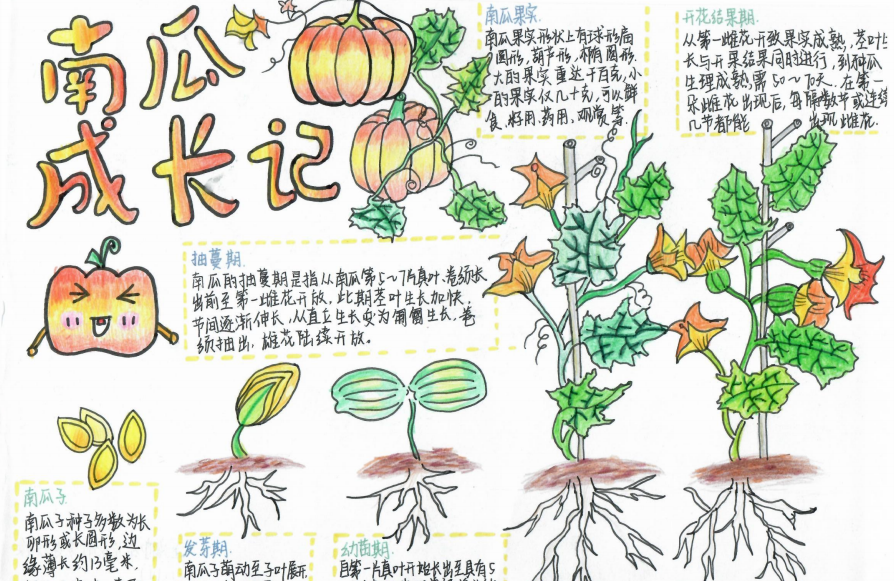 南瓜
成长记
南瓜果实.
南瓜果实形状上有球形扁
圆形,葫芦形,椭圆形.
大的果实重达千百克,小
的果实仅几十克,可以鲜
食.好用.药用、观赏等.
开花结果期.
从第一雌花开致果实成熟,茎叶
长与开果结果同时进行,到种瓜
生理成熟需50~70天.在第一
朵雌花出现后,每隔数节或连续
几节都能 出现雌花.
抽蔓期.
南瓜的抽蔓期是指从南瓜第5~7片真叶.卷须长
出前至第一雌花开放,此期茎叶生长加快,
节间逐渐伸长,从直立生长变为匍匐生长,卷
须抽出,雄花陆续开放.
南瓜子.
南瓜子种子多数为长
卵形或长圆形,边
缘薄长约13毫米,
发芽期.
南瓜子萌动至子叶展开,
幼苗期.
自第一片真叶开始长出至具有5